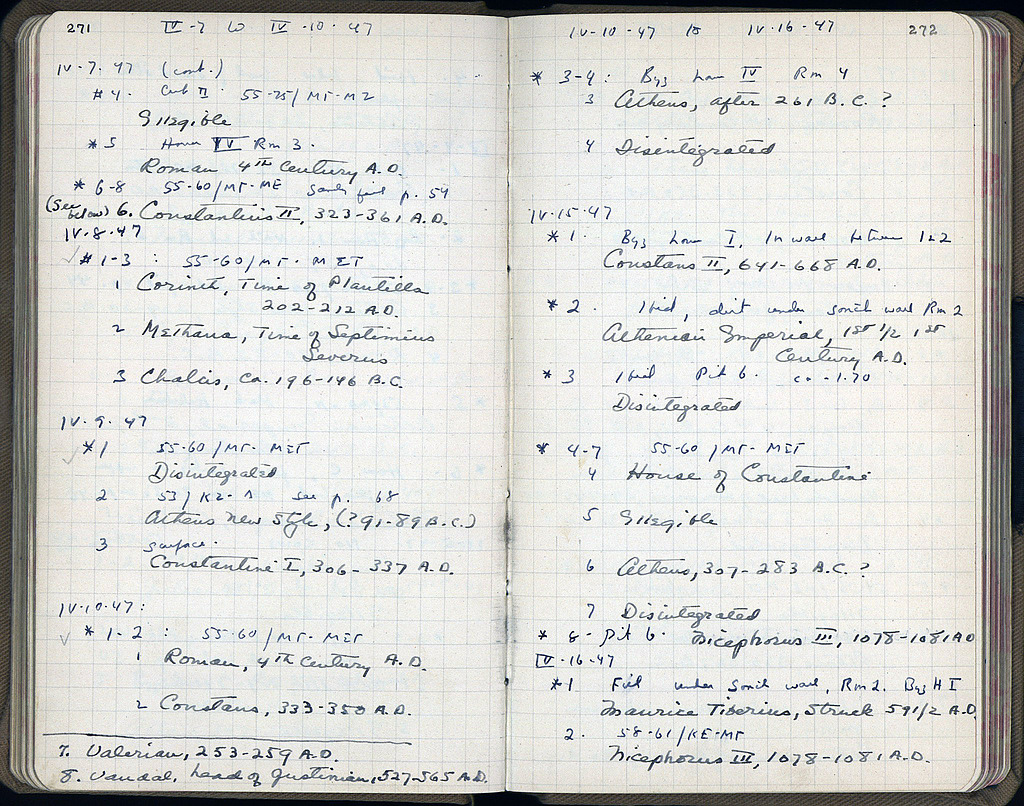 271 IV-7 to IV-10-47
IV.7.47 (cont.)
#4. Cut II 55-25/MT-MZ
Illegible
*5 House IV Rm 3.
Roman 4TH Century A.D.
*6-8 55-60/MT-ME p. 54
(See below) 6. Constantius II, 323-361 A.D.
IV.8.47
#1-3 : 55-60/MT-MET
1 Corinth, Time of Plautilla
202-212 A.D.
2 Methana, Time of Septimius
Severus
3 Chalcis, ca. 196-146 B.C.
IV.9.47
*1 55-60/MT-MET
Disintegrated
2 53/KZ-Λ see p. 68
Athens New Style, (?91-89 B.C.)
3 surface.
Constantine I, 306-337 A.D.
IV.10.47:
*1-2 : 55-60/MT-MET
1 Roman, 4TH Century A.D.
2 Constans, 333-350 A.D.
7. Valerian, 253-259 A.D.
8. Vandal, head of Justinian, 527-565 A.D.
IV-10-47 to IV-16-47 272
*3-4: Byz House IV Rm 4
3 Athens, after 261 B.C.?
4 Disintegrated
IV-15-47
*1. Byz House I, In wall between 1+2
Constans II, 641-668 A.D.
*2. Ibid, dirt under south wall Rm 2
Athenian Imperial, 1ST 1/2 1ST
Century A.D.
*3 Ibid Pit 6. ca -1.70
Disintegrated
*4-7 55-60/MT-MET
4 House of Constantine
5 Illegible
6 Athens, 307-283 B.C.?
7 Disintegrated
*8-Pit 6. Nicephorus III, 1078-1081 AD
IV-16-47
*1 Fill under South wall, Rm 2. Byz H I
Maurice Tiberius, Struck 591/2 A.D.
2. 58-61/KE-MT
Nicephorus III, 1078-1081 A.D.